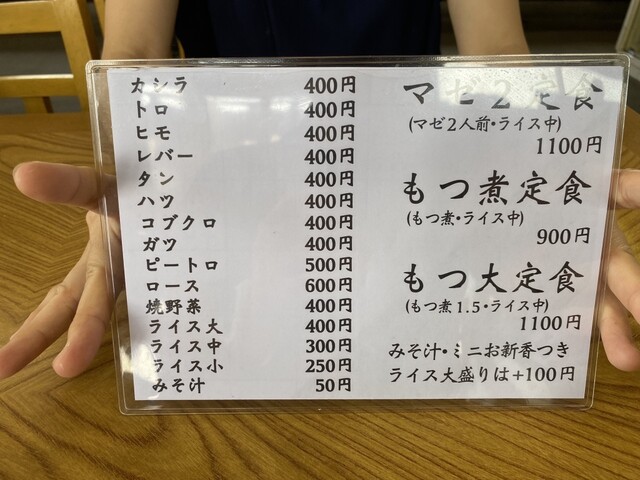 カシラ 400円
トロ 400円
ヒモ 400円
レバー 400円
タン 400円
ハツ 400円
コブクロ 400円
ガツ 400円
ピートロ 500円
ロース 600円
焼野菜 400円
ライス大 400円
ライス中 300円
ライス小 250円
みそ汁 50円
マゼ2定食
(マゼ2人前・ライス中)
1100円
もつ煮定食
(もつ煮・ライス中)
900円
もつ大定食
(もつ煮1.5・ライス中)
1100円
みそ汁・ミニお新香つき
ライス大盛りは+100円